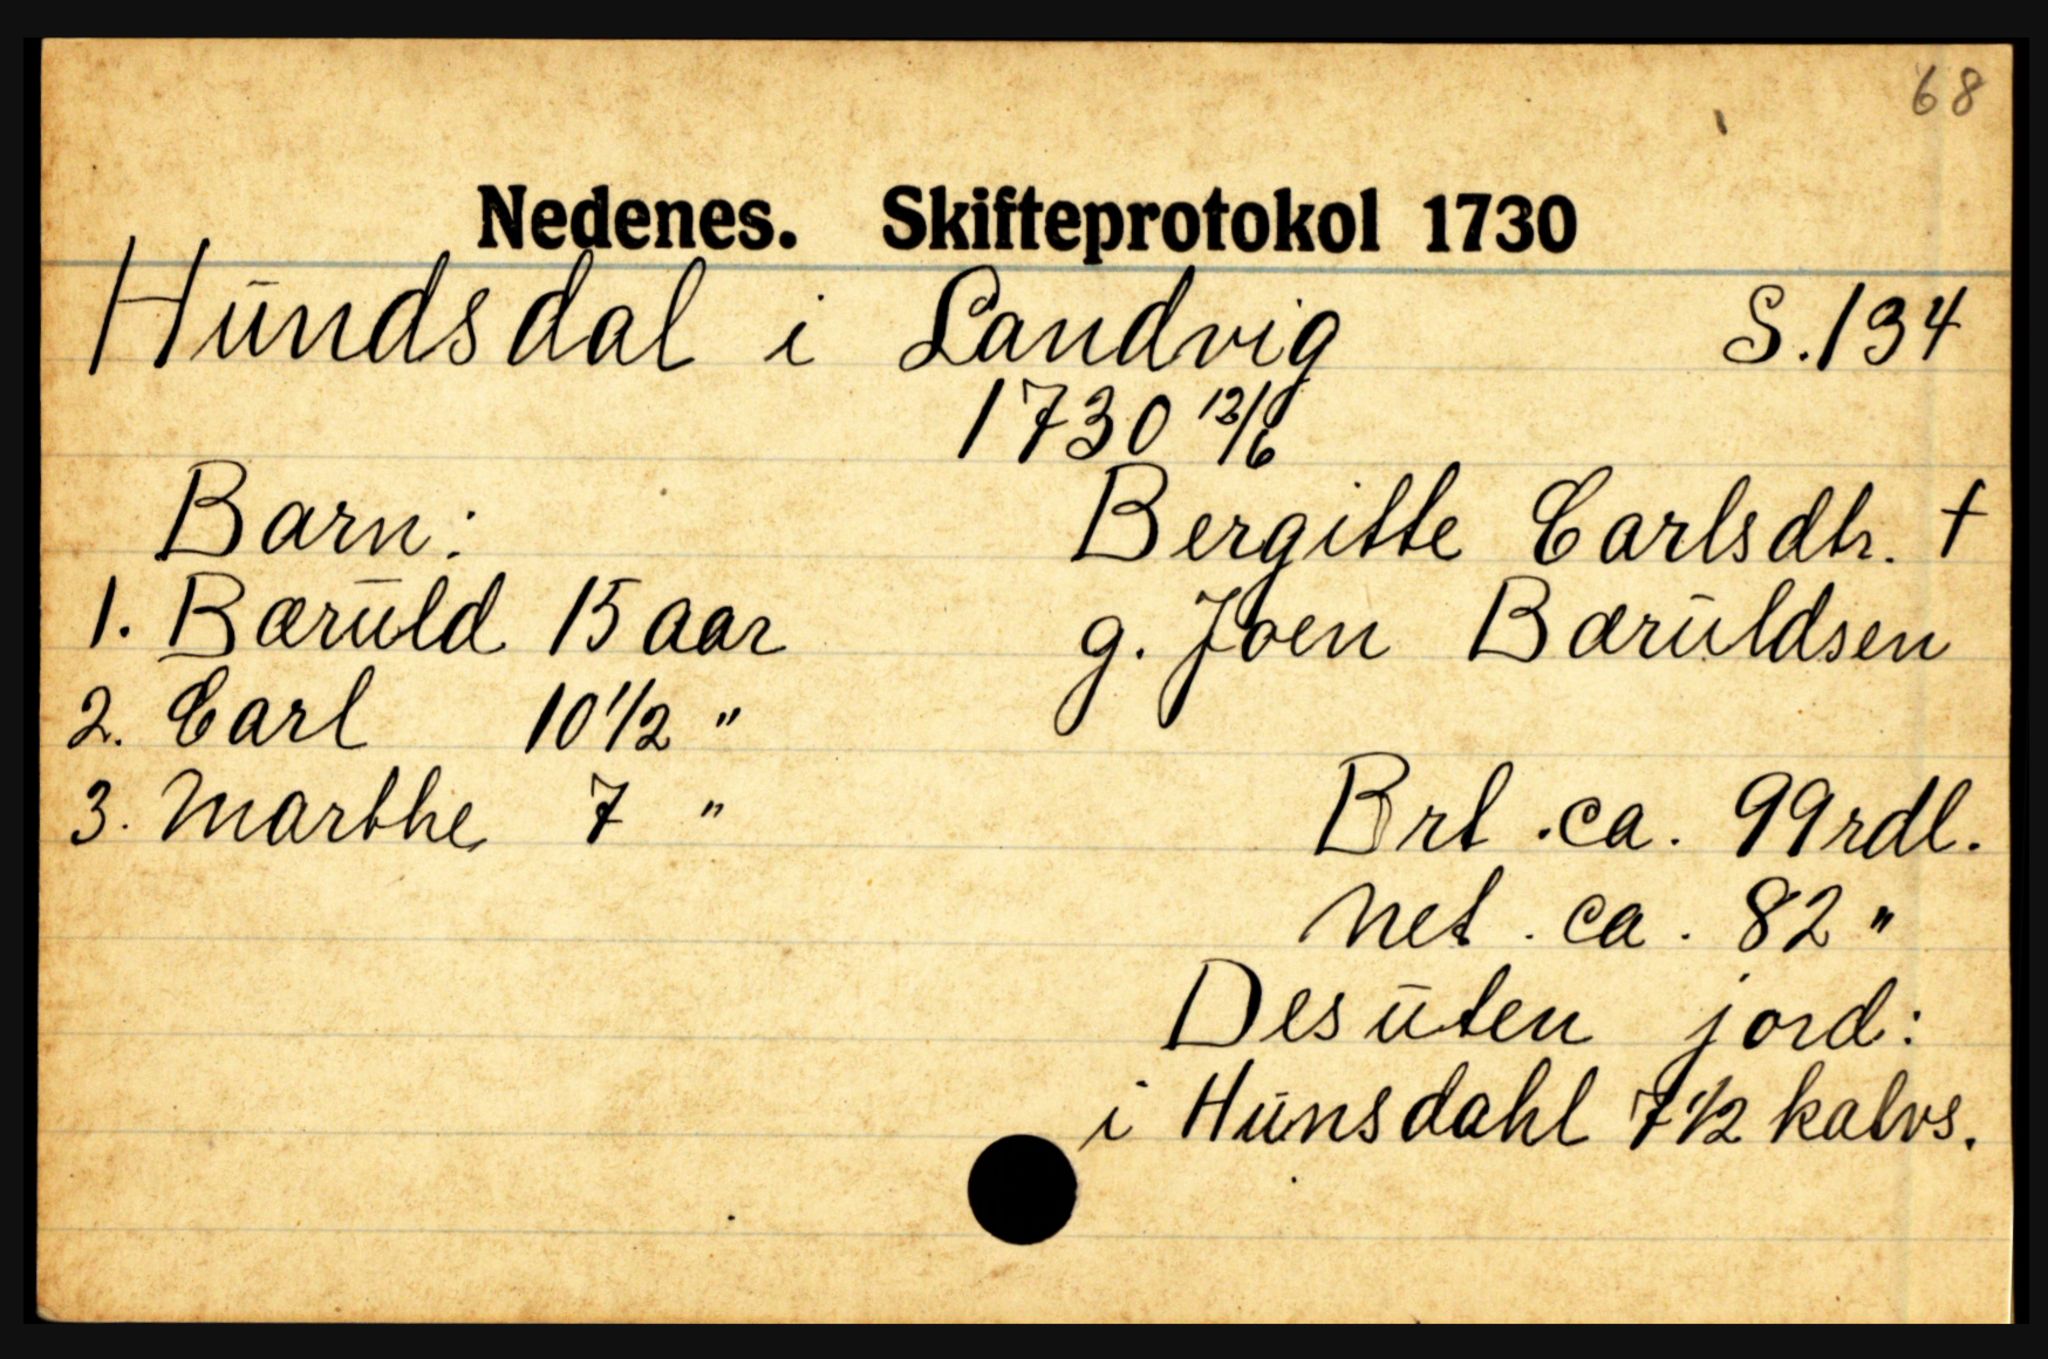 68
Nedenes. Skifteprotokol 1730
Hūndsdal i Landvig S. 134
1730 12/6
Barn: Bergitte Carlsdtr. †
1. Bærūld 15 aar g. Joen Bærūldsen
2. Carl 10 1/2 "
3. Marthe 7 " Brt. ca. 99 rdl.
Net. ca. 82 "
Desūten jord:
i Hūnsdahl 7 1/2 kalvs.